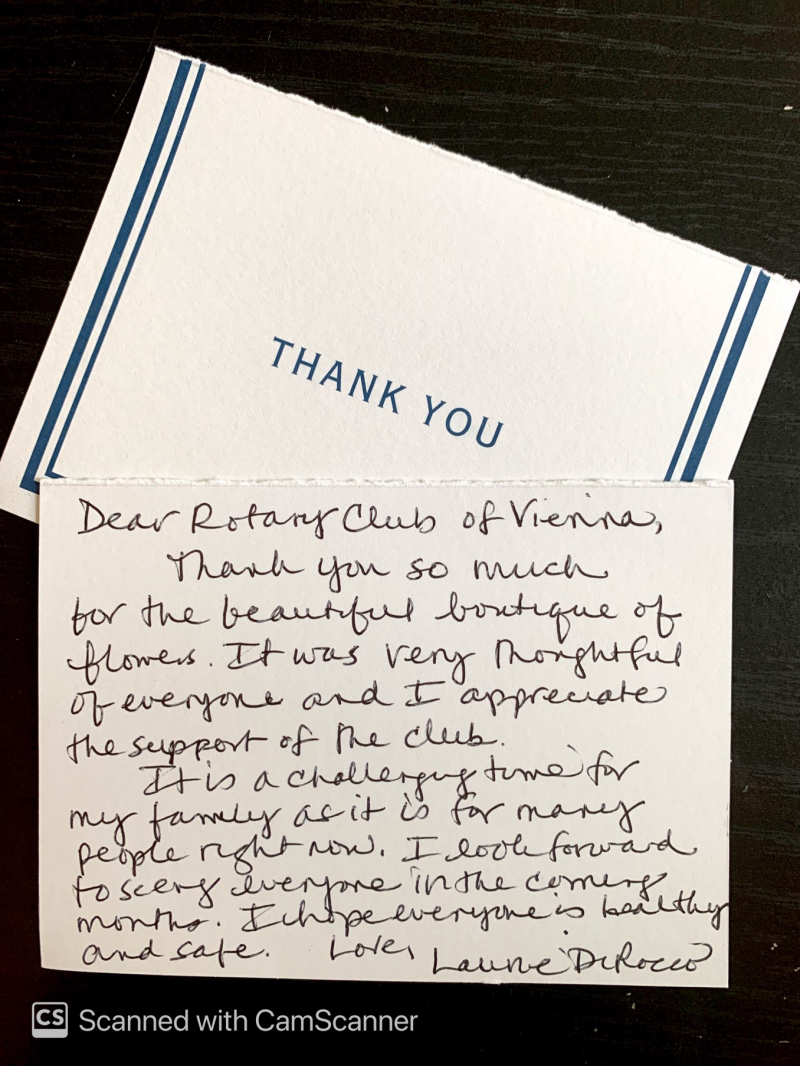 THANK YOU
Dear Rotary Club of Vienna,
Thank you so much
for the beautiful boutique of
flowers. It was very thoughtful
of everyone and I appreciate
the support of the club.
It is a challenging time for
my family as it is for many
people right now. I look forward
to seeing everyone in the coming
months. I hope everyone is healthy
and safe. Love, Laurie DiRocco
CS Scanned with CamScanner